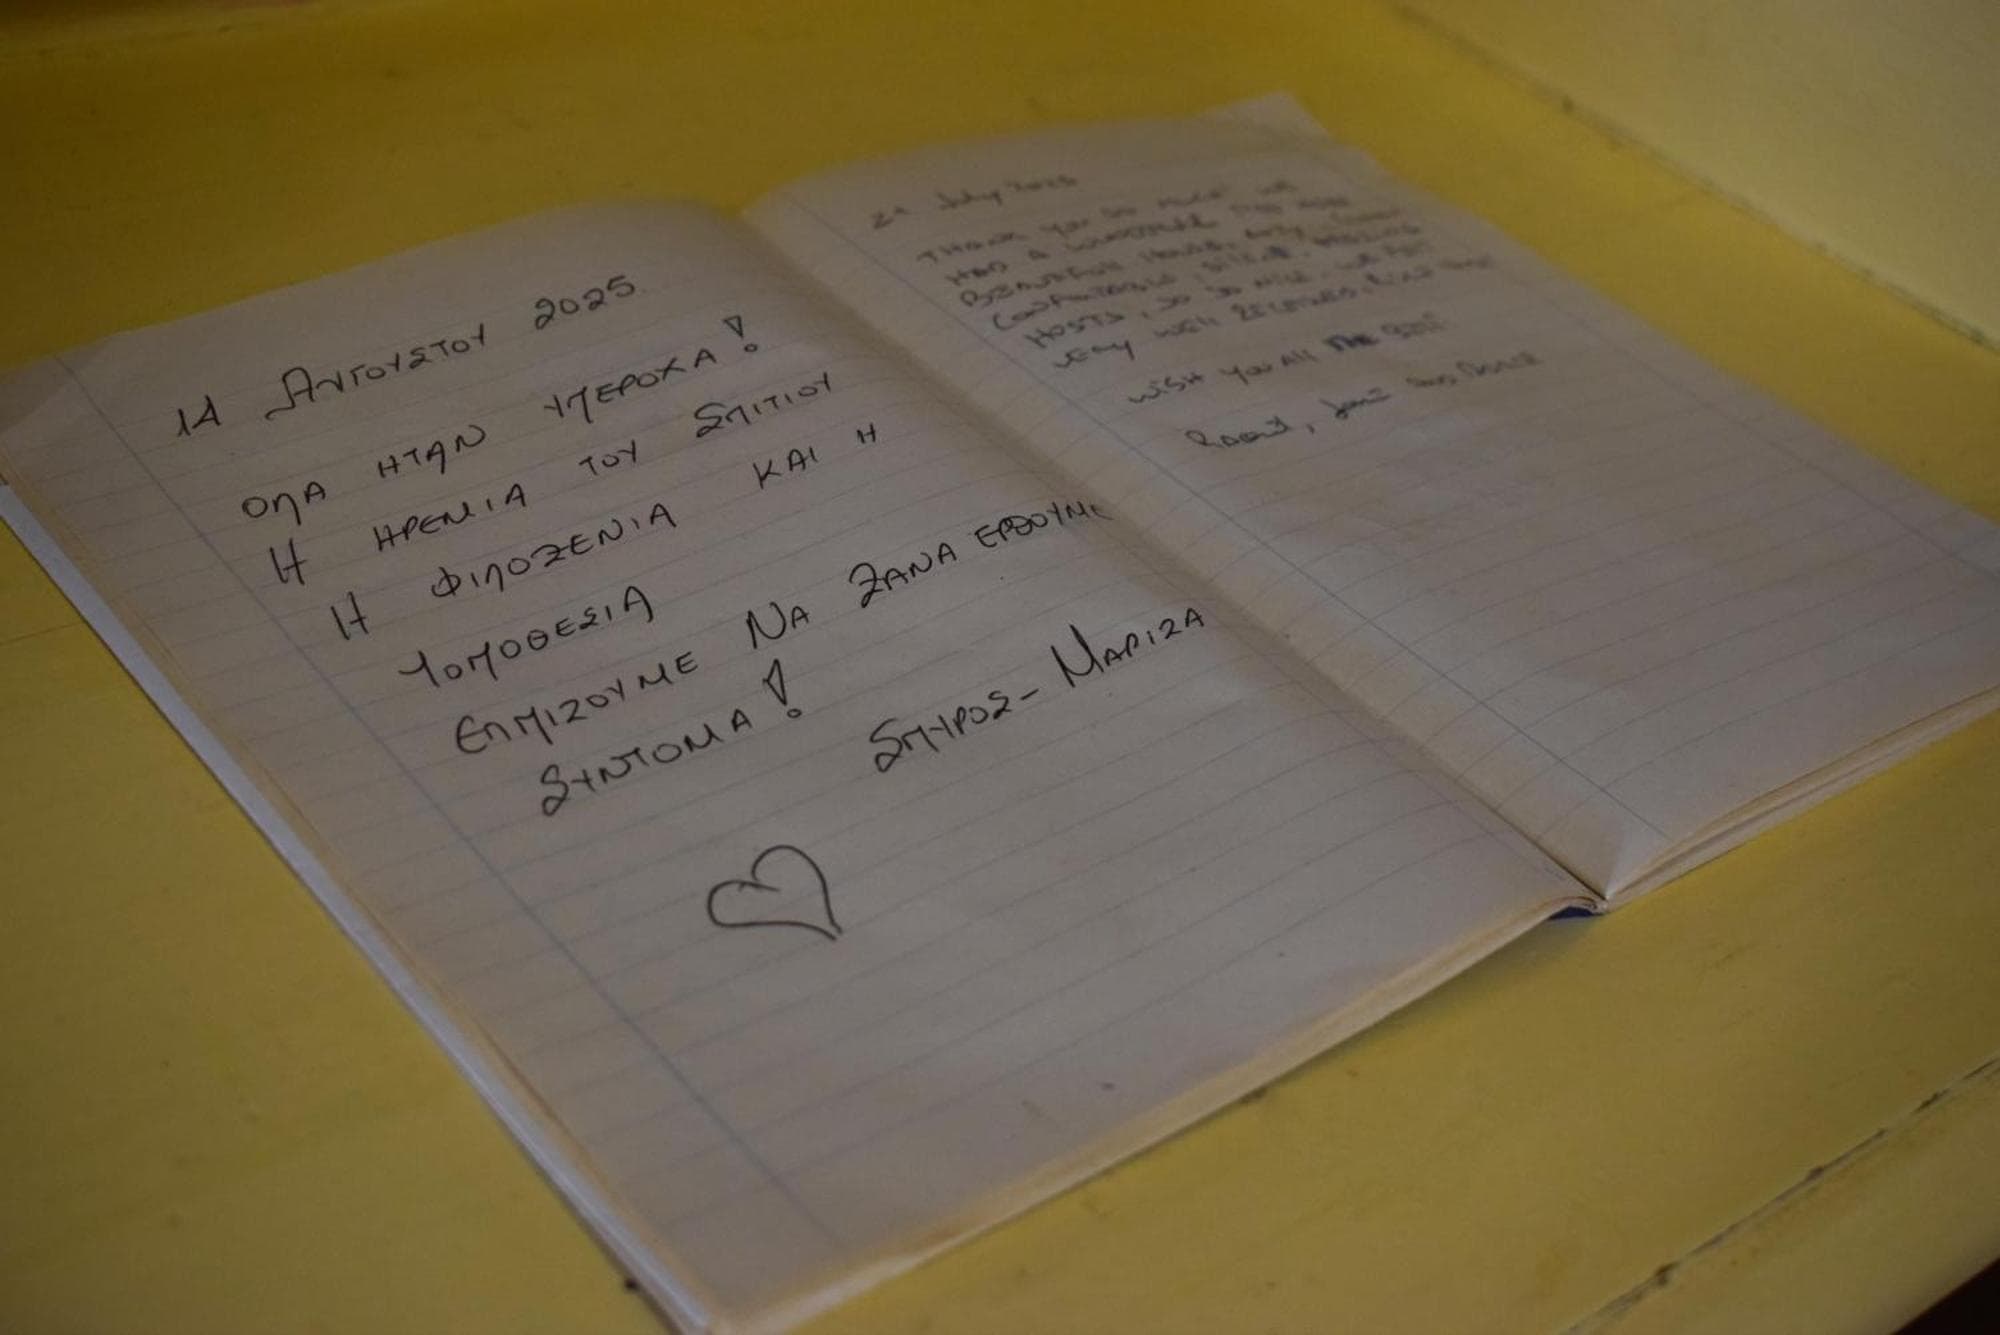 14 Αυγουστου 2025
ΟΛΑ ΗΤΑΝ ΥΠΕΡΟΧΑ!
Η ΗΡΕΜΙΑ ΤΟΥ ΣΠΙΤΙΟΥ
Η ΦΙΛΟΞΕΝΙΑ ΚΑΙ Η
ΤΟΠΟΘΕΣΙΑ
ΕΛΠΙΖΟΥΜΕ ΝΑ ΞΑΝΑ ΕΡΘΟΥΜΕ
ΣΥΝΤΟΜΑ!
ΣΠΥΡΟΣ - ΜΑΡΙΖΑ
July 2025
THANK YOU SO MUCH WE
HAD A
BEAUTIFUL HOUSE,
HOSTS, SO SO NICE. WE FELT
VERY WELL
WISH YOU ALL THE BEST